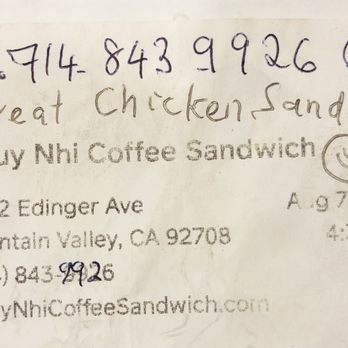 714-843 9926
reat Chicken Sand
uy Nhi Coffee Sandwich
2 Edinger Ave
Aug 7
ntain Valley, CA 92708
4:
) 843-9926
yNhiCoffeeSandwich.com